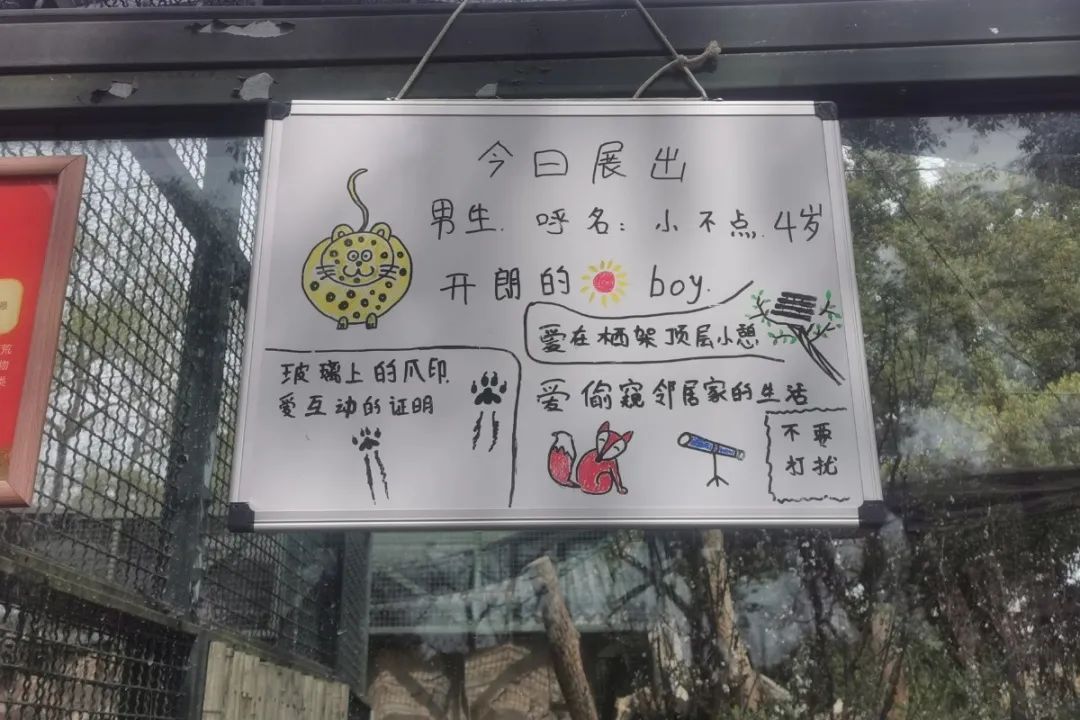 今日展出
男生. 呼名: 小不点. 4岁
开朗的 boy.
爱在栖架顶层小憩
玻璃上的爪印
爱互动的证明
爱偷窥邻居家的生活
不要
打扰
荒
物
类